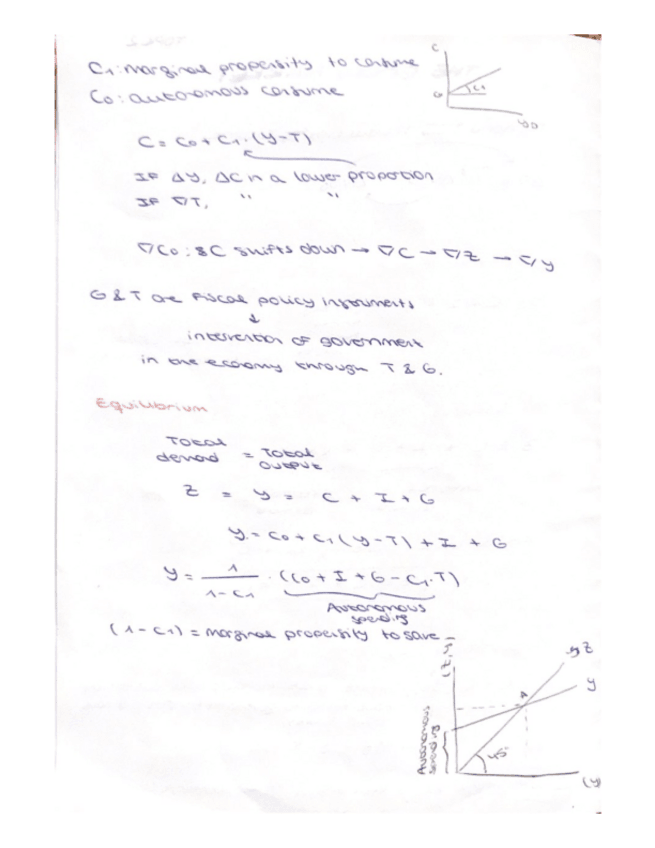 C1: marginal propensity to consume
C0: autonomous consume
C
C0
C1
YD
C = C0 + C1·(Y-T)
IF ΔY, ΔC in a lower proportion
IF ∇T, " "
∇C0: C shifts down → ∇C → ∇Z → ∇Y
G & T are Fiscal policy instruments
↓
intervention of government
in the economy through T & G.
Equilibrium
Total demand = Total output
Z = Y = C + I + G
Y = C0 + C1(Y-T) + I + G
Y = 1/(1-C1) · (C0 + I + G - C1·T)
Autonomous spending
(1-C1) = marginal propensity to save
(Z,Y)
Z
Y
A
Autonomous spending
45°
(Y)